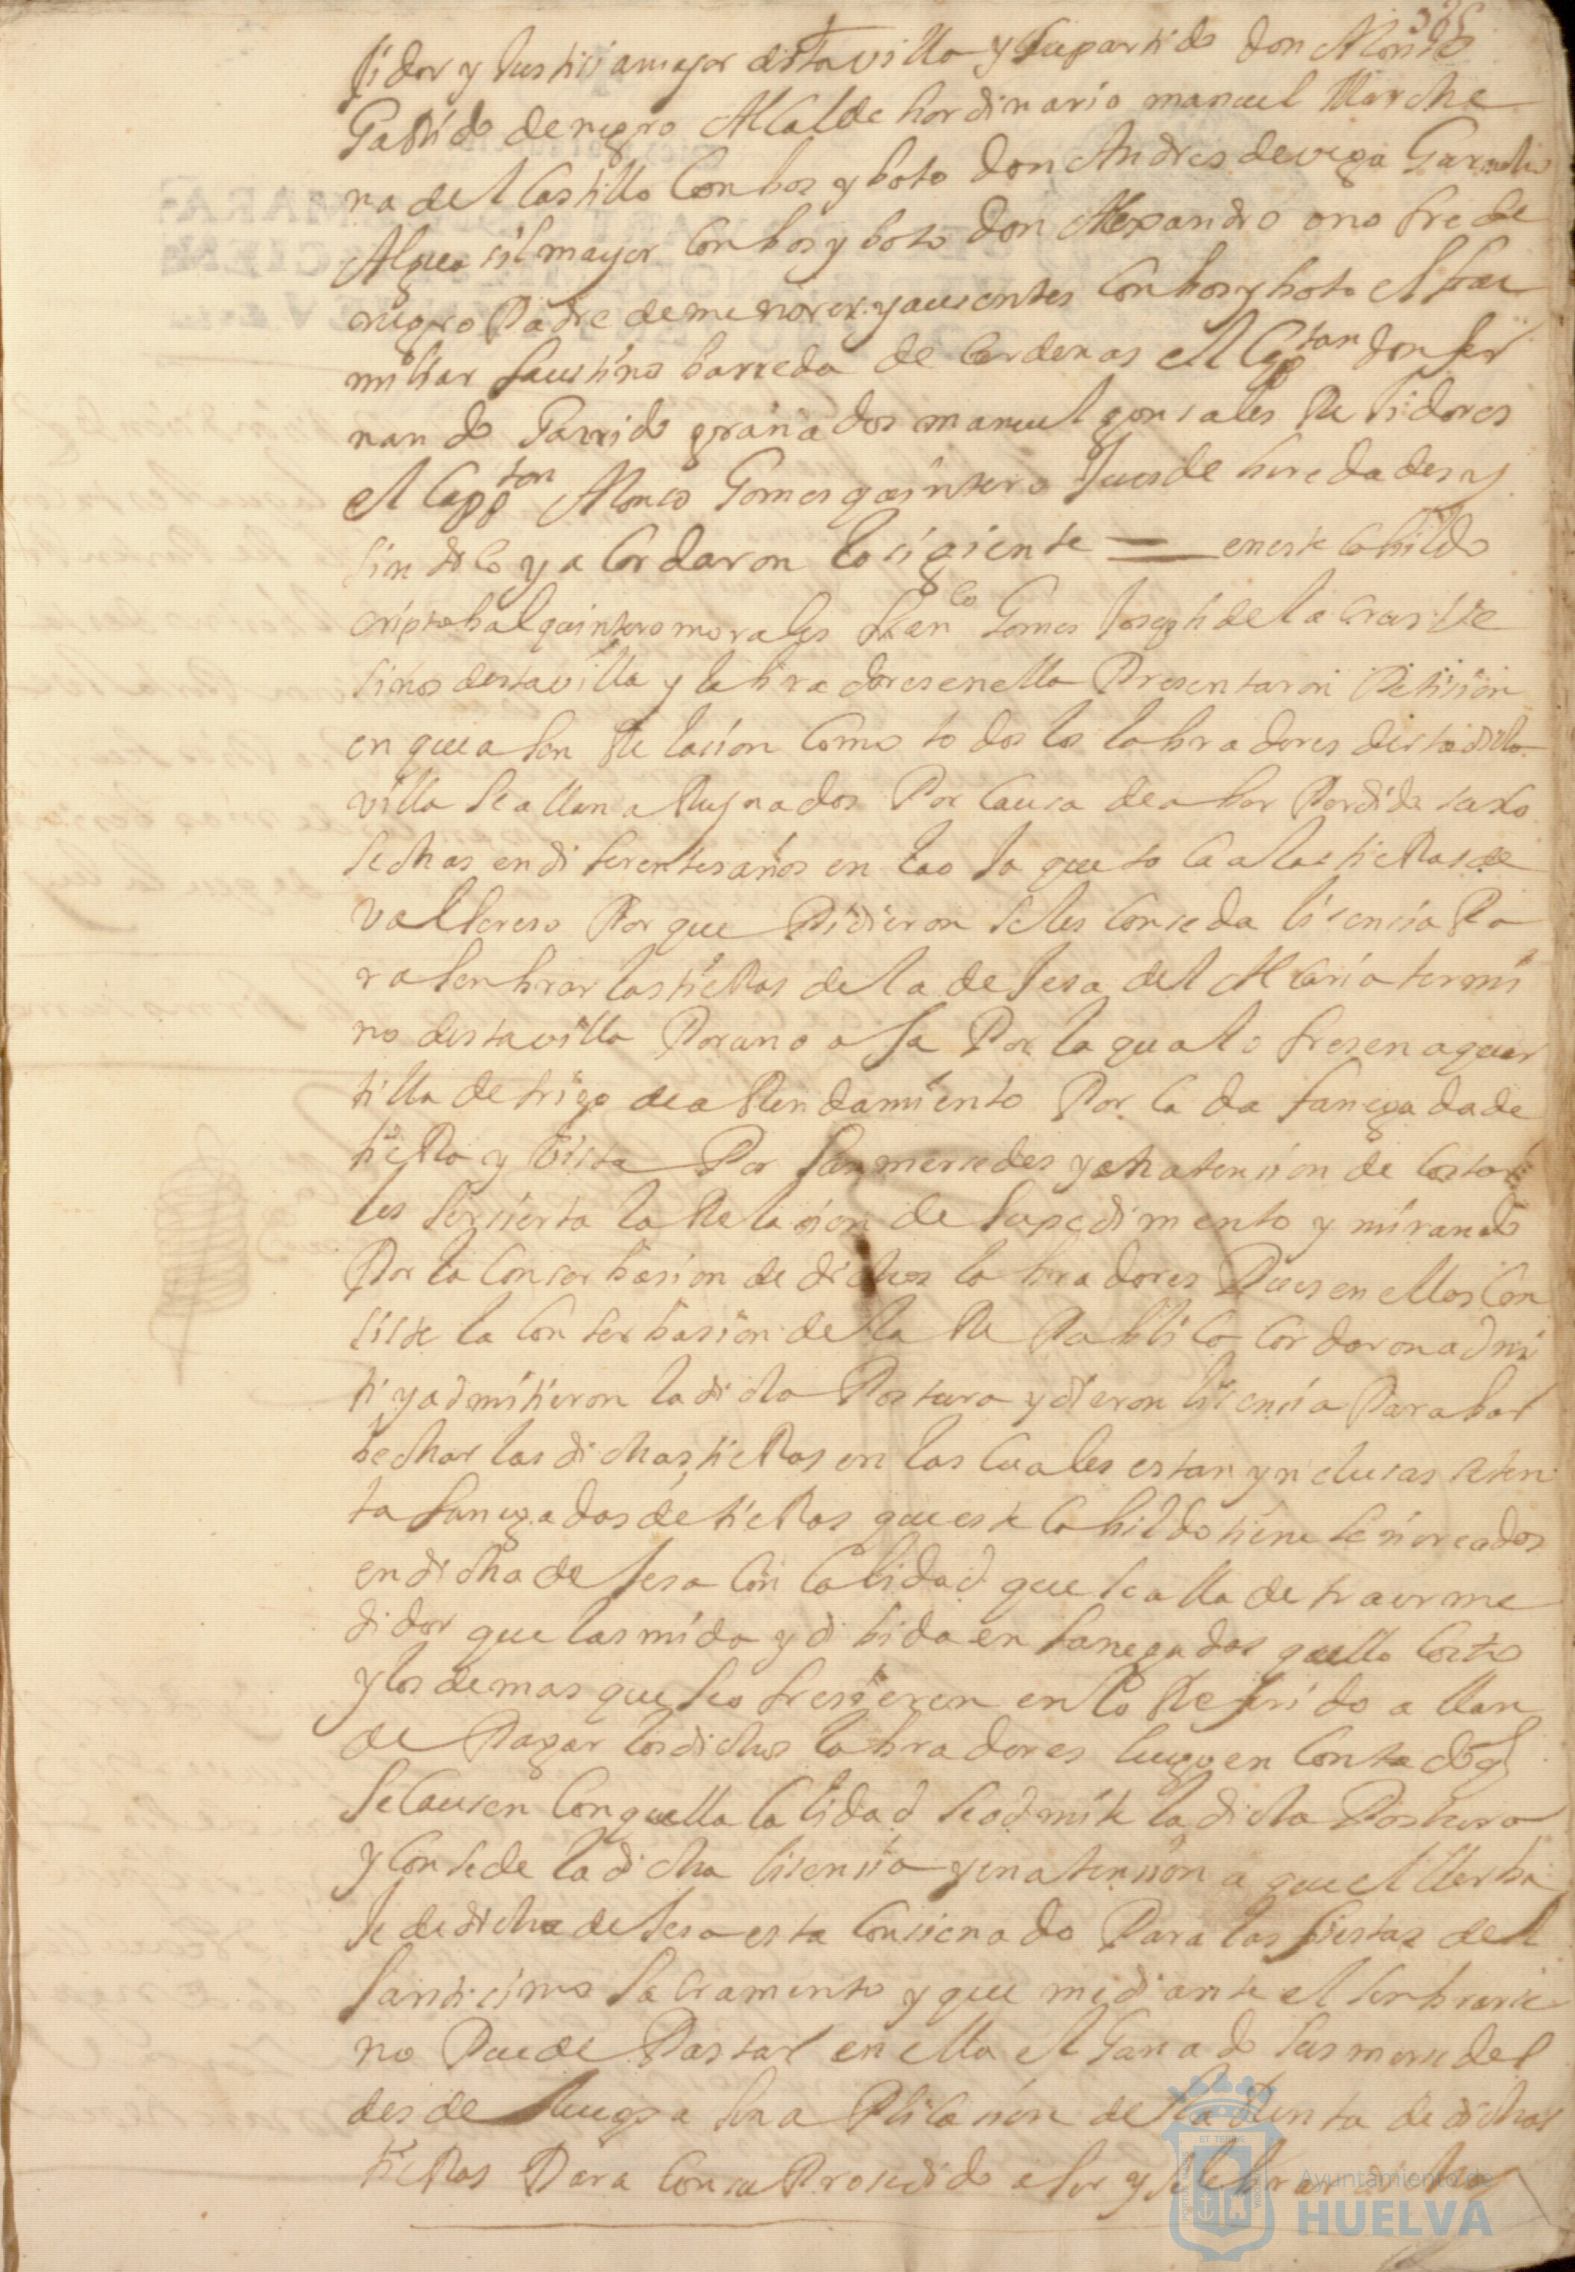 325
sidor y Justisia mayor desta villa y su partido don Alonso
Garrido de negro Alcalde hordinario manuel Marche
na del Castillo Con bos y boto don Andres de vega Garrocho
Alguasil mayor Con bos y boto don Alexandro onofre de
negro Padre de menores y ausentes Con bos y boto el fa
miliar faustino barreda de Cardenas el Capptan don fer
nando Garrido granados manuel gonsales Residores
el Cappan Alonso Gomes quintero Jues de heredades y
sindico y acordaron lo sigiente = en este Cabildo
criptobal quintero morales franco Gomes Joseph de la Crus be
sinos desta villa y labradores en ella Presentaron Petision
en que asen Relasion Como todos los labradores desta dicha
villa se allan aRuynados Por Causa de aber Perdido las Co
sechas en diferentes años en lo que toca a las tieRas de
valhereso Por que Pidieron se les Conseda lisensia Pa
ra senbrar las tieRas de la desesa del Alcaria termi
no desta villa Por uno osa Por la qual ofresen a quar
tilla de trigo de aRendamiento Por Cada fanegada de
tieRa y bista Por sus mersedes y en atension de Constar
les ser sierta la Relasion de su pedimento y mirando
Por la Conserbasion de dichos labradores Pues en ellos Con
siste la Conserbasion de la RePublica Cordaron admi
ti y admitieron la dicha Postura y dieron lisensia Para bar
bechar las dichas tieRas en las Cuales estan yn clusas seten
ta fanegadas de tieRas que este Cabildo tiene señoreadas
en dicha desesa Con Calidad que se alla de traer me
didor que las mida y dibida en fanegadas quello Costo
y los demas que se ofresieren en lo Referido allan
de Pagar los dichos labradores luego en Contado q
se Causen Con quella Calidad se admite la dicha Postura
y Consede la dicha lisensia y en atension a que el llerba
je de dicha desesa esta Consinado Para las fiestas del
santisimo sacramento y que mediante el senbrarse
no Puede Pastar en ella el Ganado sus mersedes
desde luego asen aPlicasion de la Renta de dichas
tieRas Para Con su Prosedido aser y selebrar dichas
Ayuntamiento de
HUELVA